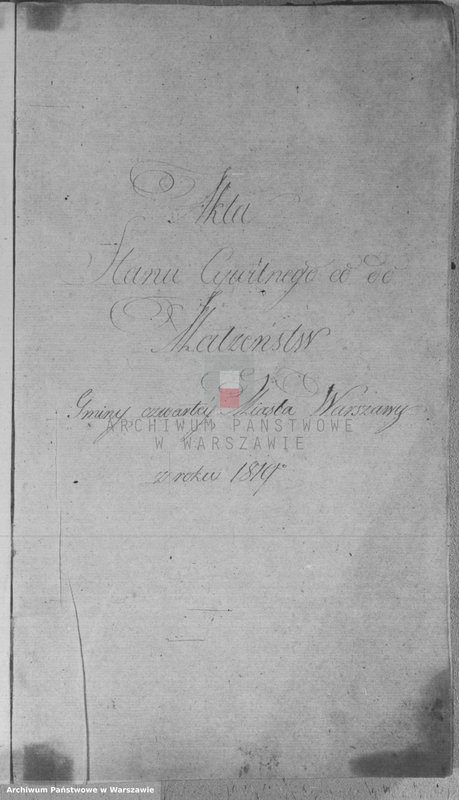 Akta
Stanu Cywilnego co do
Małzeństw
Gminy czwartey Miasta Warszawy
ARCHIWUM PAŃSTWOWE
W WARSZAWIE
w roku 1819
Archiwum Państwowe w Warszawie